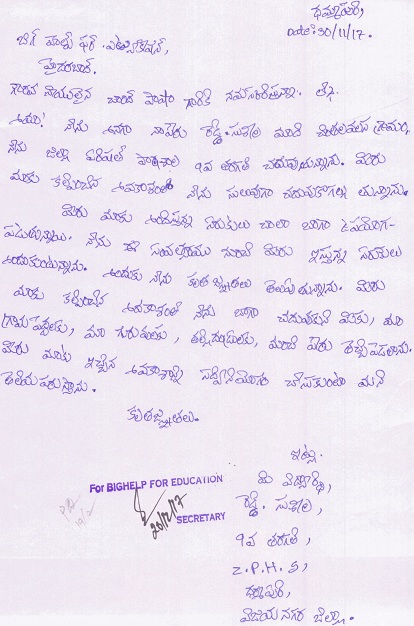 ధర్మాపురి,
Date: 30/11/17.
బిగ్ హెల్ప్ ఫర్ ఎడ్యుకేషన్,
హైదరాబాద్.
గౌరవ నీయులైన చాంద్ పాషా గారికి నమస్కరిస్తున్నా.
అయ్యా! నేను అనగా నా పేరు రెడ్డి. సుశీల మాది గ్రామం,
నేను జిల్లా పరిషత్ పాఠశాల 9వ తరగతి చదువుతున్నాను. మీరు
మాకు కల్పించిన అవకాశంతో నేను సులువుగా చదువుకోగల్గు తున్నాను.
మీరు మాకు అందిస్తున్న సరుకులు చాలా బాగా ఉపయోగ-
పడుతున్నాయి. నేను ఈ సంవత్సరము నుంచి మీరు ఇస్తున్న సరుకులు
అందుకుంటున్నాను. అందుకు నేను కృతజ్ఞతలు తెలుపుతున్నాను. మీరు
మాకు కల్పించిన అవకాశంతో నేను బాగా చదువుకుని మీకు, మా
గ్రామ పెద్దలకు, మా గురువులకు, తల్లిదండ్రులకు, మంచి పేరు తెచ్చిపెడతాను.
మీరు మాకు ఇచ్చిన అవకాశాన్ని సద్వినియోగం చేసుకుంటా మని
తెలియ పరుస్తాను.
కృతజ్ఞతలు.
ఇట్లు
మీ విద్యార్థి,
రెడ్డి. సుశీల,
9వ తరగతి,
Z.P.H.S,
ధర్మాపురి,
విజయనగర జిల్లా.
For BIGHELP FOR EDUCATION
20/12/17
SECRETARY